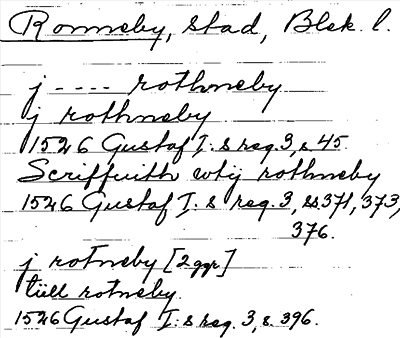 Ronneby, stad, Blek. l.
j ---- rothneby
j rothneby
1526 Gustaf I:s reg. 3, s. 45.
Scriffuith wtij rothneby
1526 Gustaf I:s reg. 3, ss 371, 373,
376.
j rotneby [2 ggr]
tiill rotneby.
1526 Gustaf I:s reg. 3, s. 396.